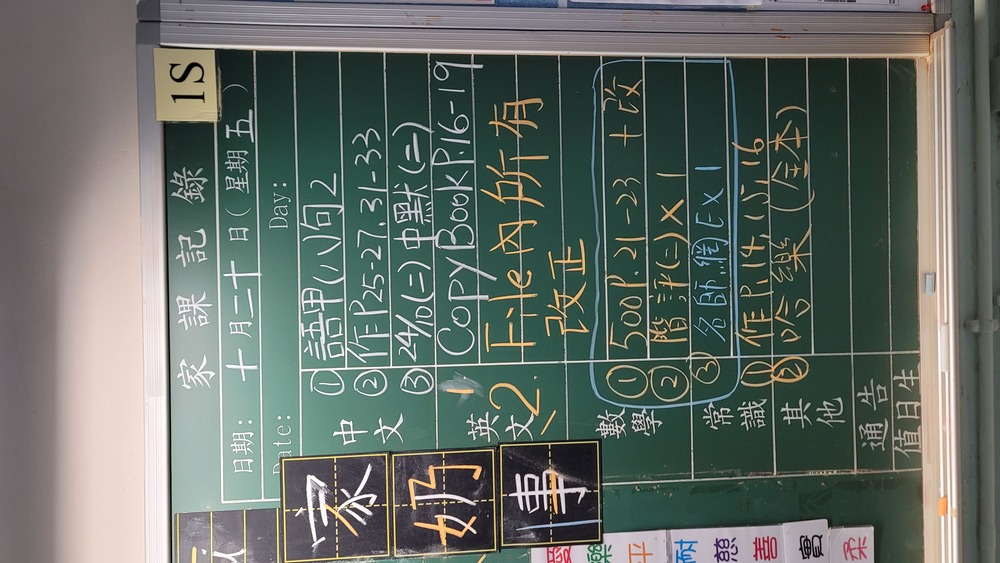 1S
家課記錄
日期: 十月二十日(星期五)
Date: Day:
中文
① 語甲(八)句2
② 作P.25-27.31-33
③ 24/10(二)中默(二)
英文
1 Copy Book P.16-19
2 File內所有
改正
數學
① 500 P.21-23 +改
② 階評(二)X 1
③ 名師.網EX 1
常識
① 作P.14,15,16
其他
② 哈樂(全本)
通告
值日生
家
奶
事
愛
樂
平
耐
慈
喜
柔